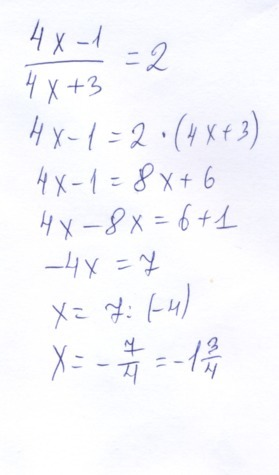 4x-1/4x+3 = 2
4x-1=2·(4x+3)
4x-1=8x+6
4x-8x=6+1
-4x=7
x= 7:(-4)
x=-7/4=-1 3/4